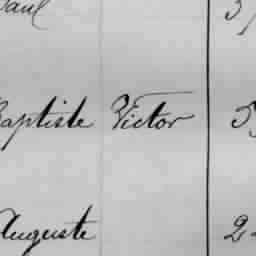 Paul
Baptiste Victor
Auguste 2